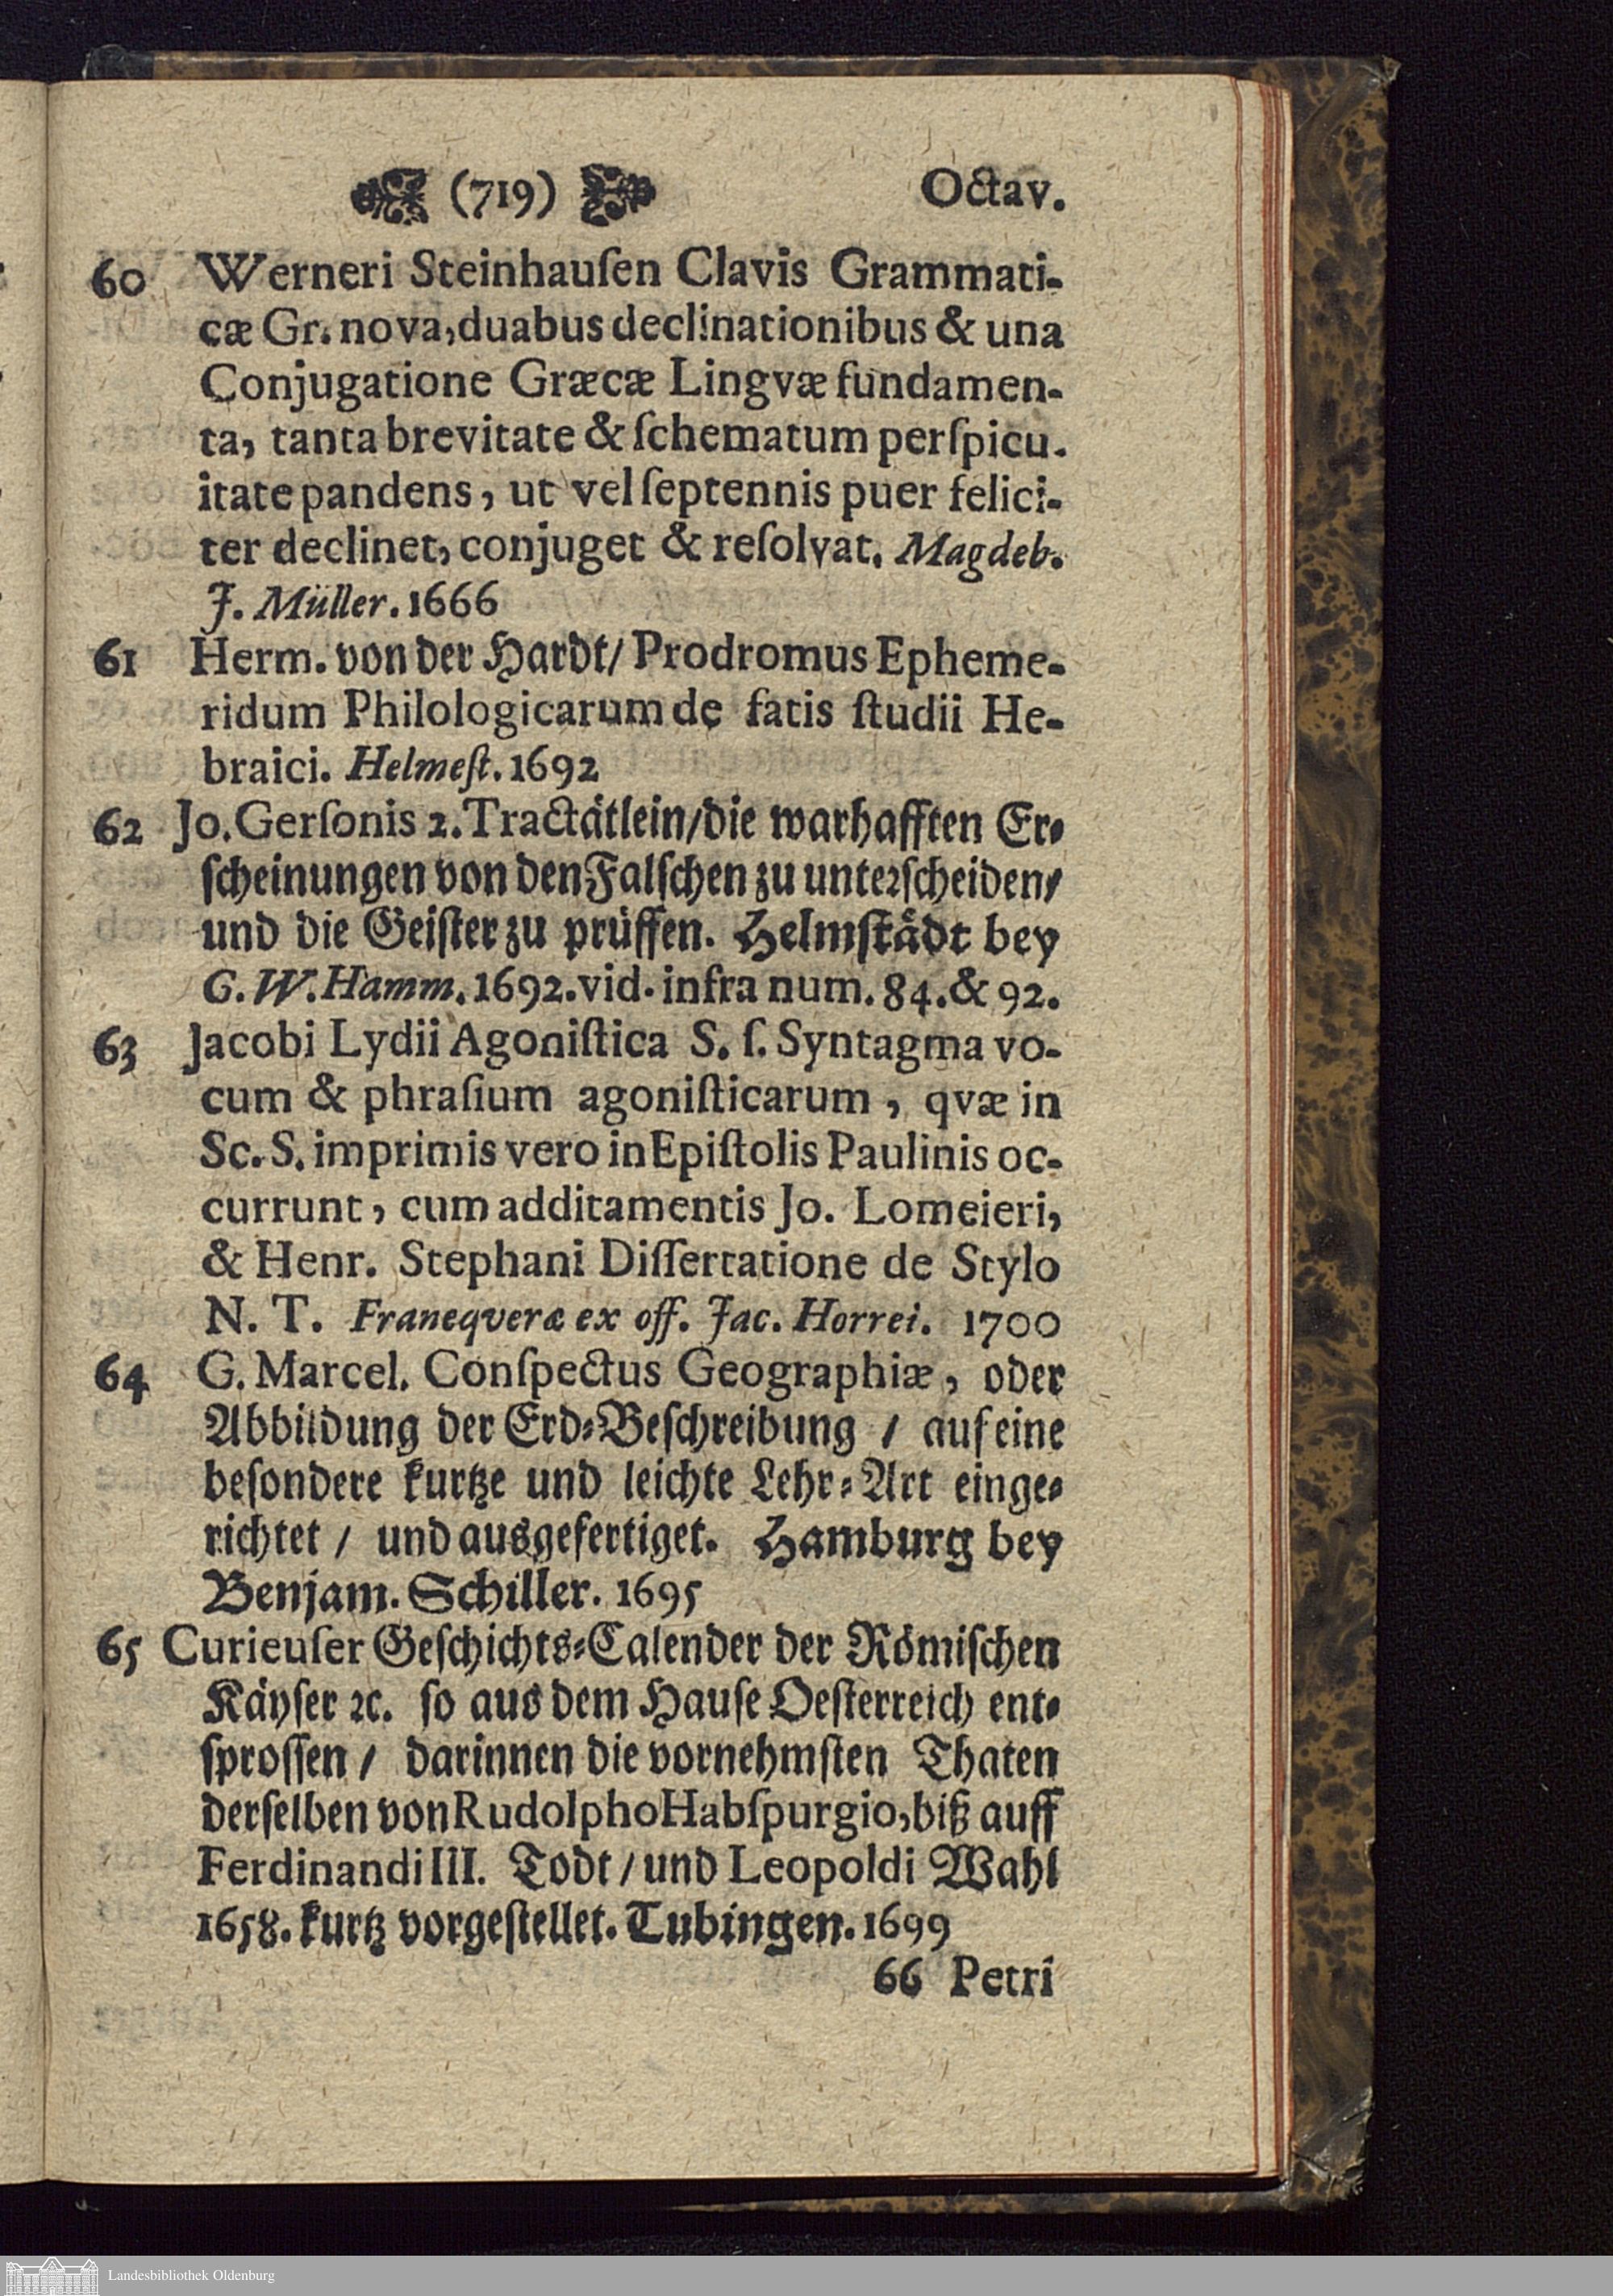 (719) Octav.
60 Werneri Steinhauſen Clavis Grammati-
cæ Gr. nova, duabus declinationibus & una
Conjugatione Græcæ Lingvæ fundamen-
ta, tanta brevitate & ſchematum perſpicu-
itate pandens, ut vel ſeptennis puer felici-
ter declinet, conjuget & reſolvat. Magdeb.
J. Müller. 1666
61 Herm. von der Hardt/ Prodromus Epheme-
ridum Philologicarum de fatis ſtudii He-
braici. Helmeſt. 1692
62 Jo. Gerſonis 2. Tractätlein/ die warhafften Er-
ſcheinungen von den Falſchen zu unterſcheiden/
und die Geiſter zu prüffen. Helmſtådt bey
G. W. Hamm. 1692. vid. infra num. 84. & 92.
63 Jacobi Lydii Agoniſtica S. ſ. Syntagma vo-
cum & phraſium agoniſticarum, qvæ in
Sc. S. imprimis vero in Epiſtolis Paulinis oc-
currunt, cum additamentis Jo. Lomeieri,
& Henr. Stephani Diſſertatione de Stylo
N. T. Franeqveræ ex off. Jac. Horrei. 1700
64 G. Marcel. Conſpectus Geographiæ, oder
Abbildung der Erd-Beſchreibung / auf eine
beſondere kurtze und leichte Lehr-Art einge-
richtet / und ausgefertiget. Hamburg bey
Benjam. Schiller. 1695
65 Curieuſer Geſchichts-Calender der Römiſchen
Käyſer ꝛc. ſo aus dem Hauſe Oeſterreich ent-
ſproſſen / darinnen die vornehmſten Thaten
derſelben von Rudolpho Habſpurgio, biß auff
Ferdinandi III. Todt / und Leopoldi Wahl
1658. kurtz vorgeſtellet. Tubingen. 1699
66 Petri
Landesbibliothek Oldenburg